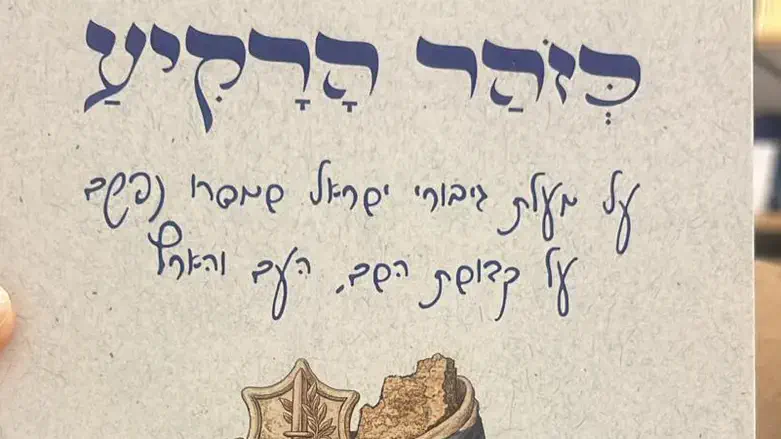 כְּזֹהַר הָרָקִיעַ
על מעלת גיבורי ישראל שמסרו נפשם
על קדושת השם, העם והארץ